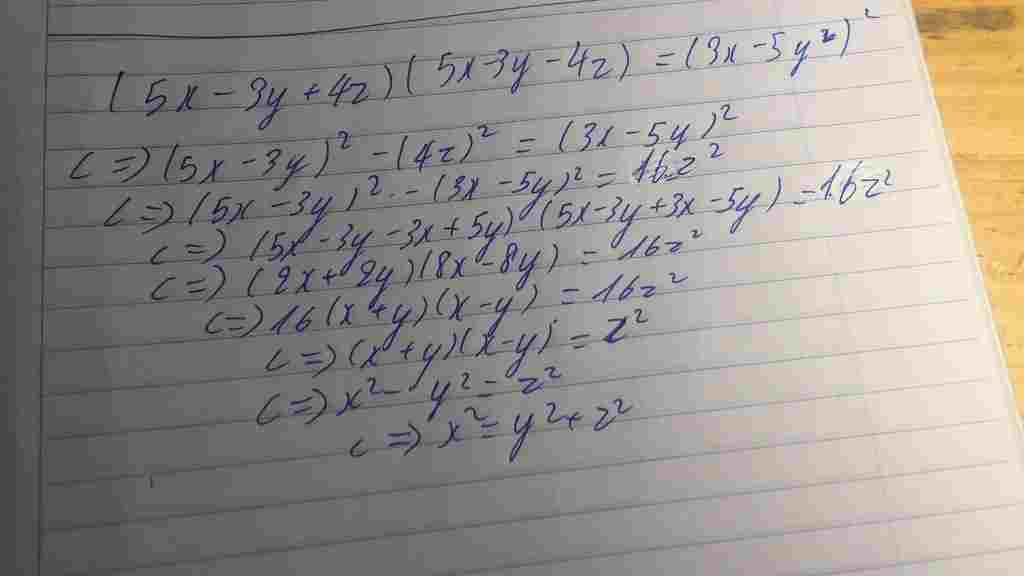 (5x-3y+4z)(5x-3y-4z)=(3x-5y²)²
<=>(5x-3y)²-(4z)²=(3x-5y)²
<=>(5x-3y)²-(3x-5y)²=16z²
<=>(5x-3y-3x+5y)(5x-3y+3x-5y)=16z²
<=>(2x+2y)(8x-8y)=16z²
<=>16(x+y)(x-y)=16z²
<=>(x+y)(x-y)=z²
<=>x²-y²=z²
<=>x²=y²+z²